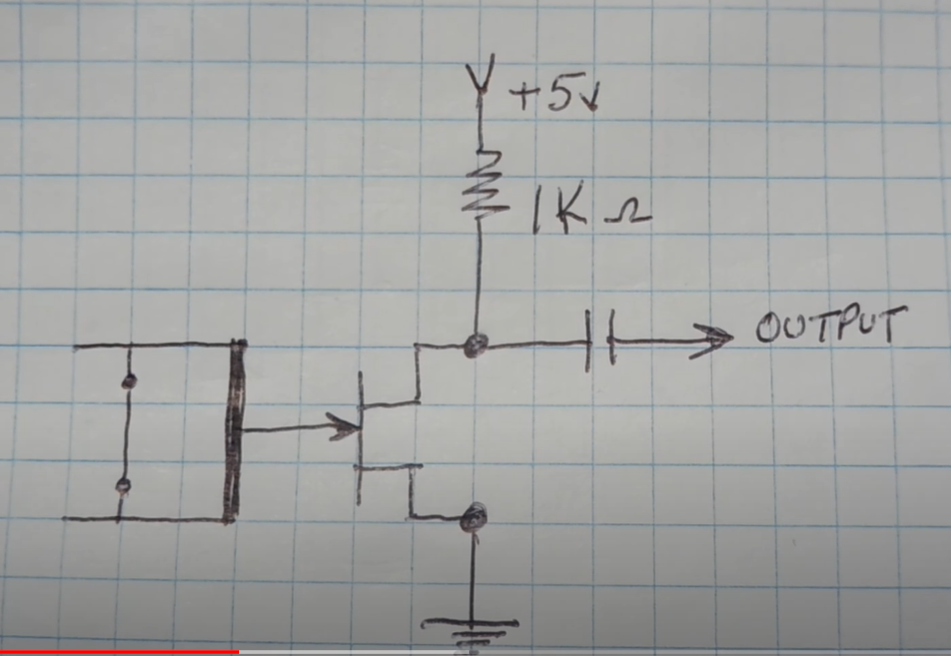 +5v
1K Ω
OUTPUT